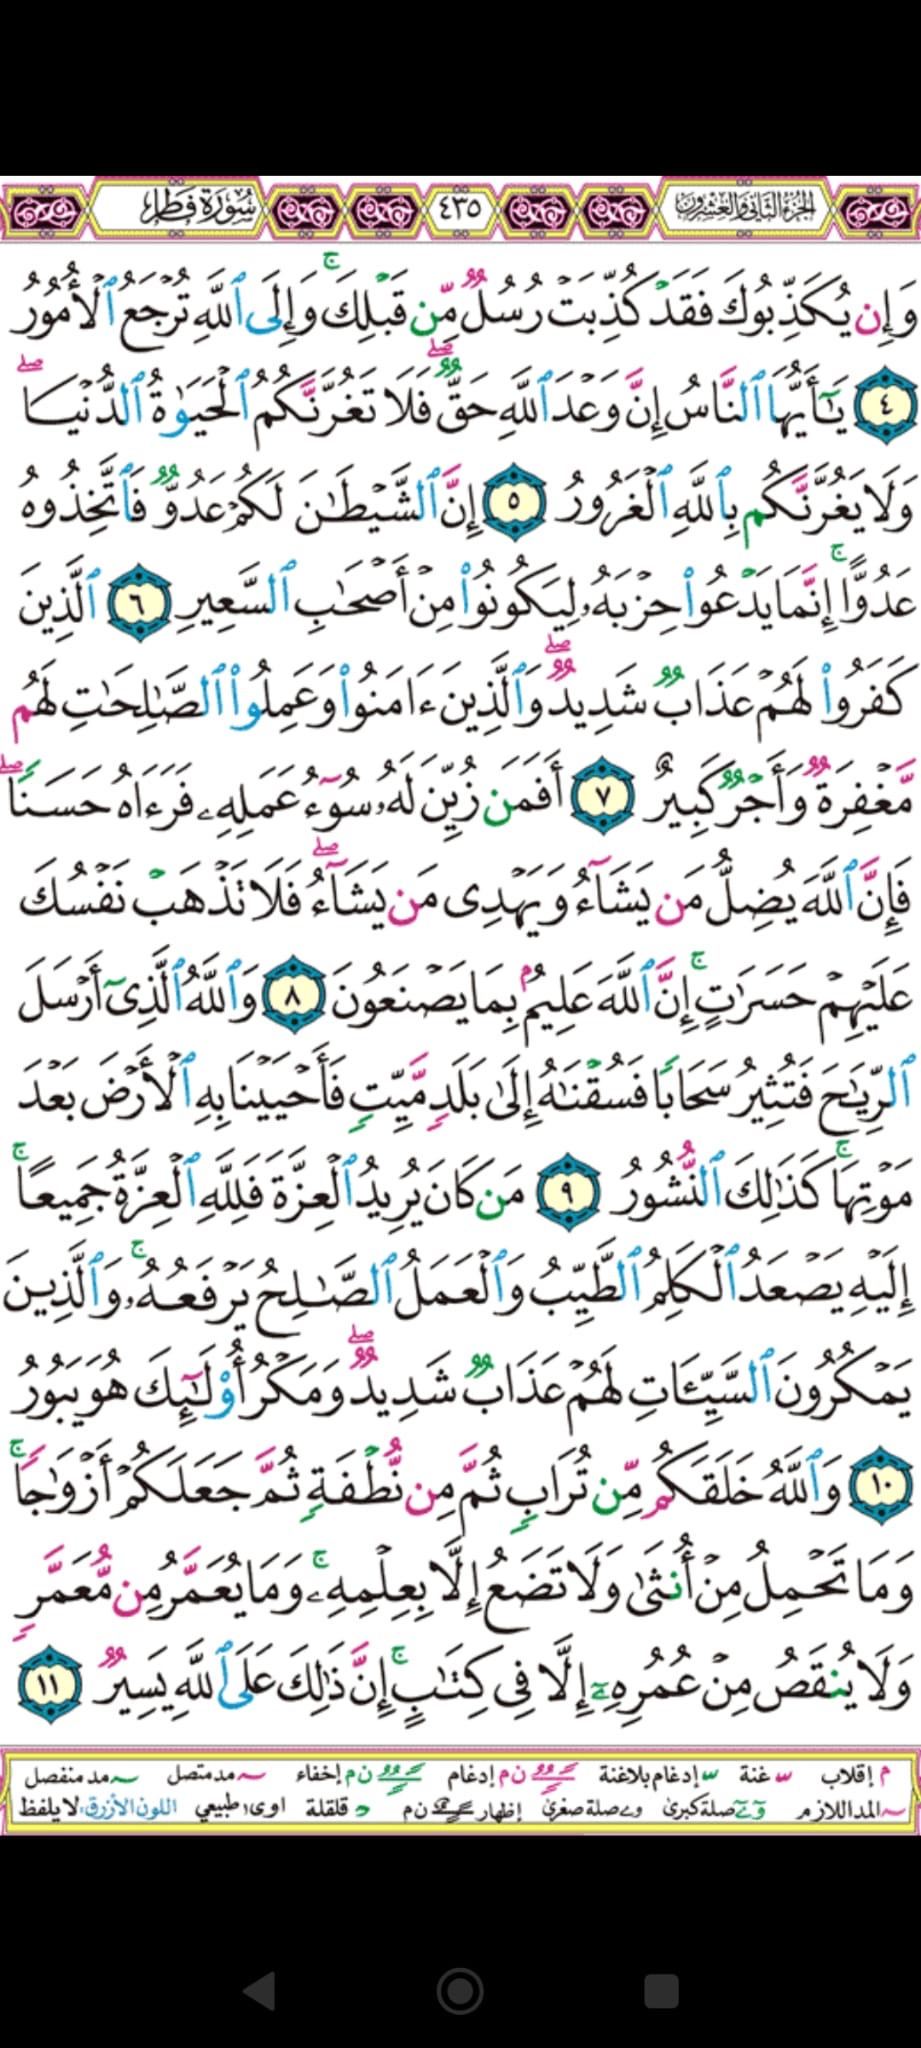 الجزء الثاني والعشرون ٤٣٥ سورة فاطر
وَإِن يُكَذِّبُوكَ فَقَدْ كُذِّبَتْ رُسُلٌ مِّن قَبْلِكَ ۚ وَإِلَى ٱللَّهِ تُرْجَعُ ٱلْأُمُورُ
٤ يَٰٓأَيُّهَا ٱلنَّاسُ إِنَّ وَعْدَ ٱللَّهِ حَقٌّ ۖ فَلَا تَغُرَّنَّكُمُ ٱلْحَيَوٰةُ ٱلدُّنْيَا ۖ
وَلَا يَغُرَّنَّكُم بِٱللَّهِ ٱلْغَرُورُ ٥ إِنَّ ٱلشَّيْطَٰنَ لَكُمْ عَدُوٌّ فَٱتَّخِذُوهُ
عَدُوًّا ۚ إِنَّمَا يَدْعُوا۟ حِزْبَهُۥ لِيَكُونُوا۟ مِنْ أَصْحَٰبِ ٱلسَّعِيرِ ٦ ٱلَّذِينَ
كَفَرُوا۟ لَهُمْ عَذَابٌ شَدِيدٌ ۖ وَٱلَّذِينَ ءَامَنُوا۟ وَعَمِلُوا۟ ٱلصَّٰلِحَٰتِ لَهُم
مَّغْفِرَةٌ وَأَجْرٌ كَبِيرٌ ٧ أَفَمَن زُيِّنَ لَهُۥ سُوٓءُ عَمَلِهِۦ فَرَءَاهُ حَسَنًا ۖ
فَإِنَّ ٱللَّهَ يُضِلُّ مَن يَشَآءُ وَيَهْدِى مَن يَشَآءُ ۖ فَلَا تَذْهَبْ نَفْسُكَ
عَلَيْهِمْ حَسَرَٰتٍ ۚ إِنَّ ٱللَّهَ عَلِيمٌۢ بِمَا يَصْنَعُونَ ٨ وَٱللَّهُ ٱلَّذِىٓ أَرْسَلَ
ٱلرِّيَٰحَ فَتُثِيرُ سَحَابًا فَسُقْنَٰهُ إِلَىٰ بَلَدٍ مَّيِّتٍ فَأَحْيَيْنَا بِهِ ٱلْأَرْضَ بَعْدَ
مَوْتِهَا ۚ كَذَٰلِكَ ٱلنُّشُورُ ٩ مَن كَانَ يُرِيدُ ٱلْعِزَّةَ فَلِلَّهِ ٱلْعِزَّةُ جَمِيعًا ۚ
إِلَيْهِ يَصْعَدُ ٱلْكَلِمُ ٱلطَّيِّبُ وَٱلْعَمَلُ ٱلصَّٰلِحُ يَرْفَعُهُۥ ۚ وَٱلَّذِينَ
يَمْكُرُونَ ٱلسَّيِّـَٔاتِ لَهُمْ عَذَابٌ شَدِيدٌ ۖ وَمَكْرُ أُو۟لَٰٓئِكَ هُوَ يَبُورُ
١٠ وَٱللَّهُ خَلَقَكُم مِّن تُرَابٍ ثُمَّ مِن نُّطْفَةٍ ثُمَّ جَعَلَكُمْ أَزْوَٰجًا ۚ
وَمَا تَحْمِلُ مِنْ أُنثَىٰ وَلَا تَضَعُ إِلَّا بِعِلْمِهِۦ ۚ وَمَا يُعَمَّرُ مِن مُّعَمَّرٍ
وَلَا يُنقَصُ مِنْ عُمُرِهِۦٓ إِلَّا فِى كِتَٰبٍ ۚ إِنَّ ذَٰلِكَ عَلَى ٱللَّهِ يَسِيرٌ ١١
م إقلاب غنة إدغام بلاغنة ن م إدغام ن م إخفاء مد متصل مد منفصل
المد اللازم صلة كبرى صلة صغرى إظهار ن م قلقلة اوى طبيعي اللون الأزرق: لا يلفظ